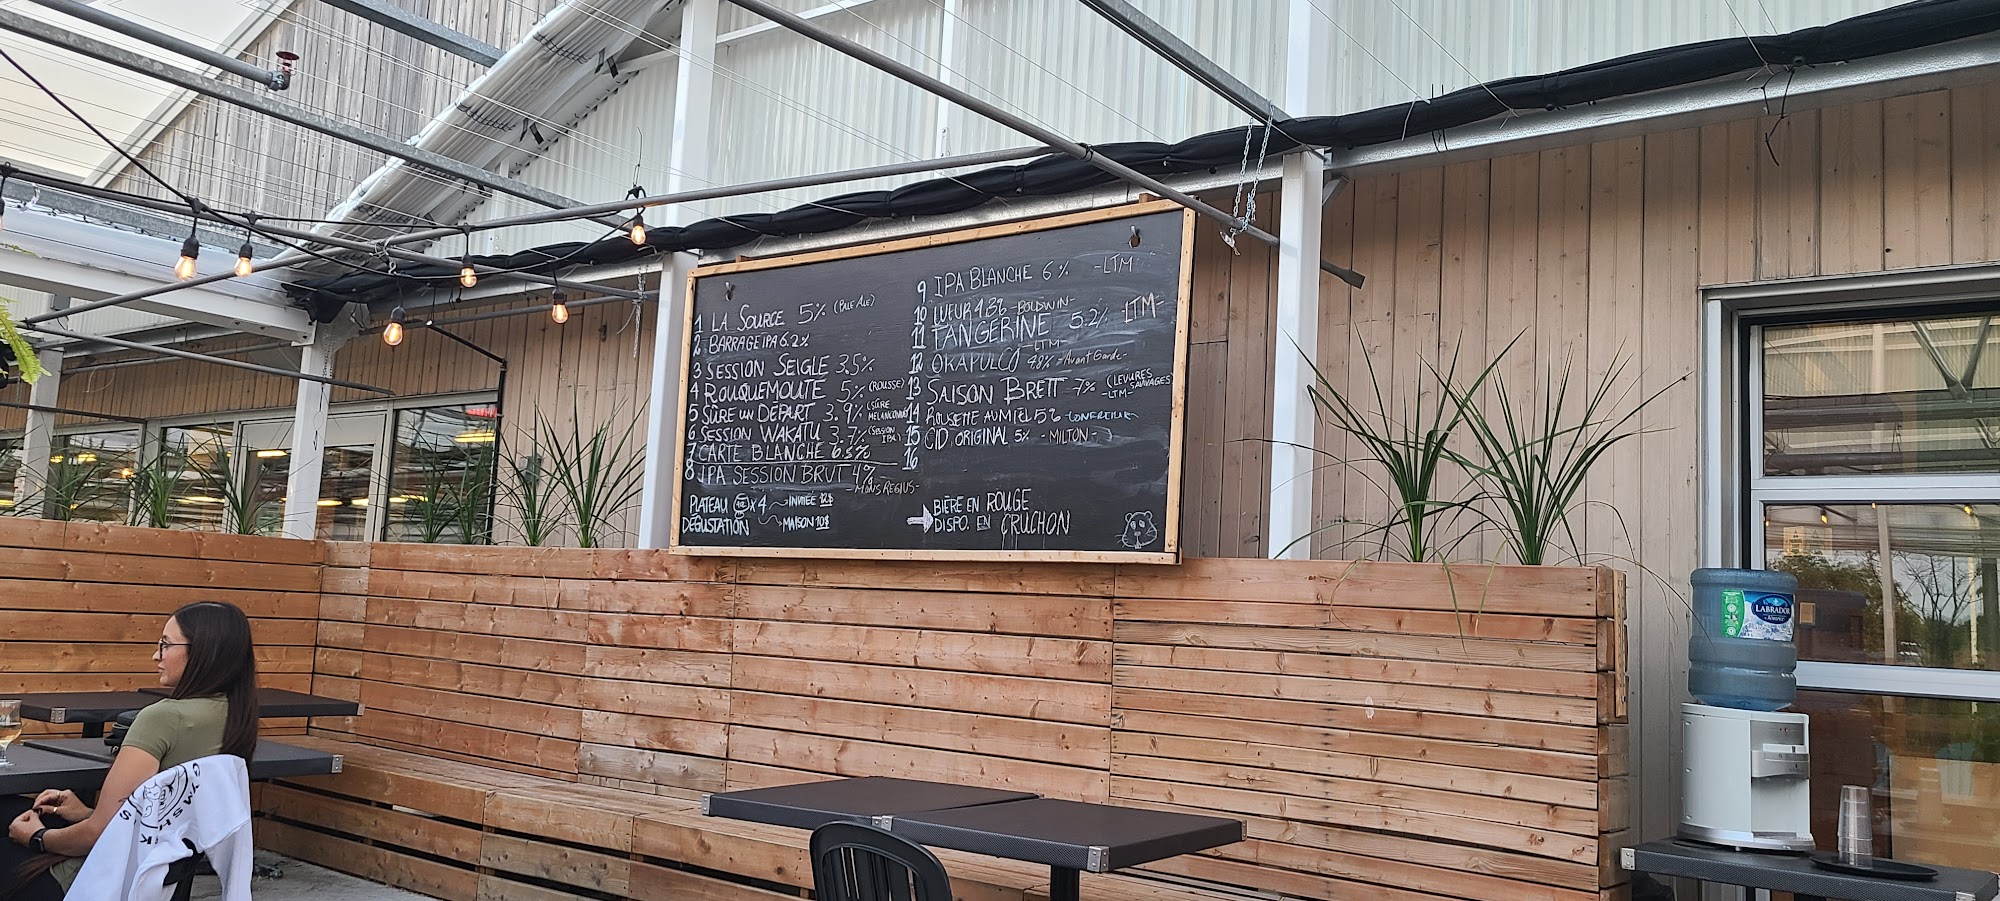 1 LA SOURCE 5% (PALE ALE)
2 BARRAGE IPA 6.2%
3 SESSION SEIGLE 3.5%
4 ROUQUEMOUTE 5% (ROUSSE)
5 SÛRE UN DÉPART 3.9% (SÛRE
6 SESSION WAKATU 3.7% (SESSION
IPA)
7 CARTE BLANCHE 6.5%
8 IPA SESSION BRUT 4%
-MONS REGIUS-
PLATEAU x 4 INVITÉE 12$
DÉGUSTATION MAISON 10$
9 IPA BLANCHE 6% -LTM
10 LUEUR 4.3% -BOLDWIN-
11 TANGERINE 5.2% -LTM-
-LTM-
12 OKAPULCO 4.8% -Avant Garde-
13 SAISON BRETT 7% (LEVURES
SAUVAGES)
-LTM-
14 ROUSSETTE AU MIEL 5%
15 CID ORIGINAL 5% -MILTON-
16
BIÈRE EN ROUGE
DISPO. EN CRUCHON
LABRADOR
GYMSHARK